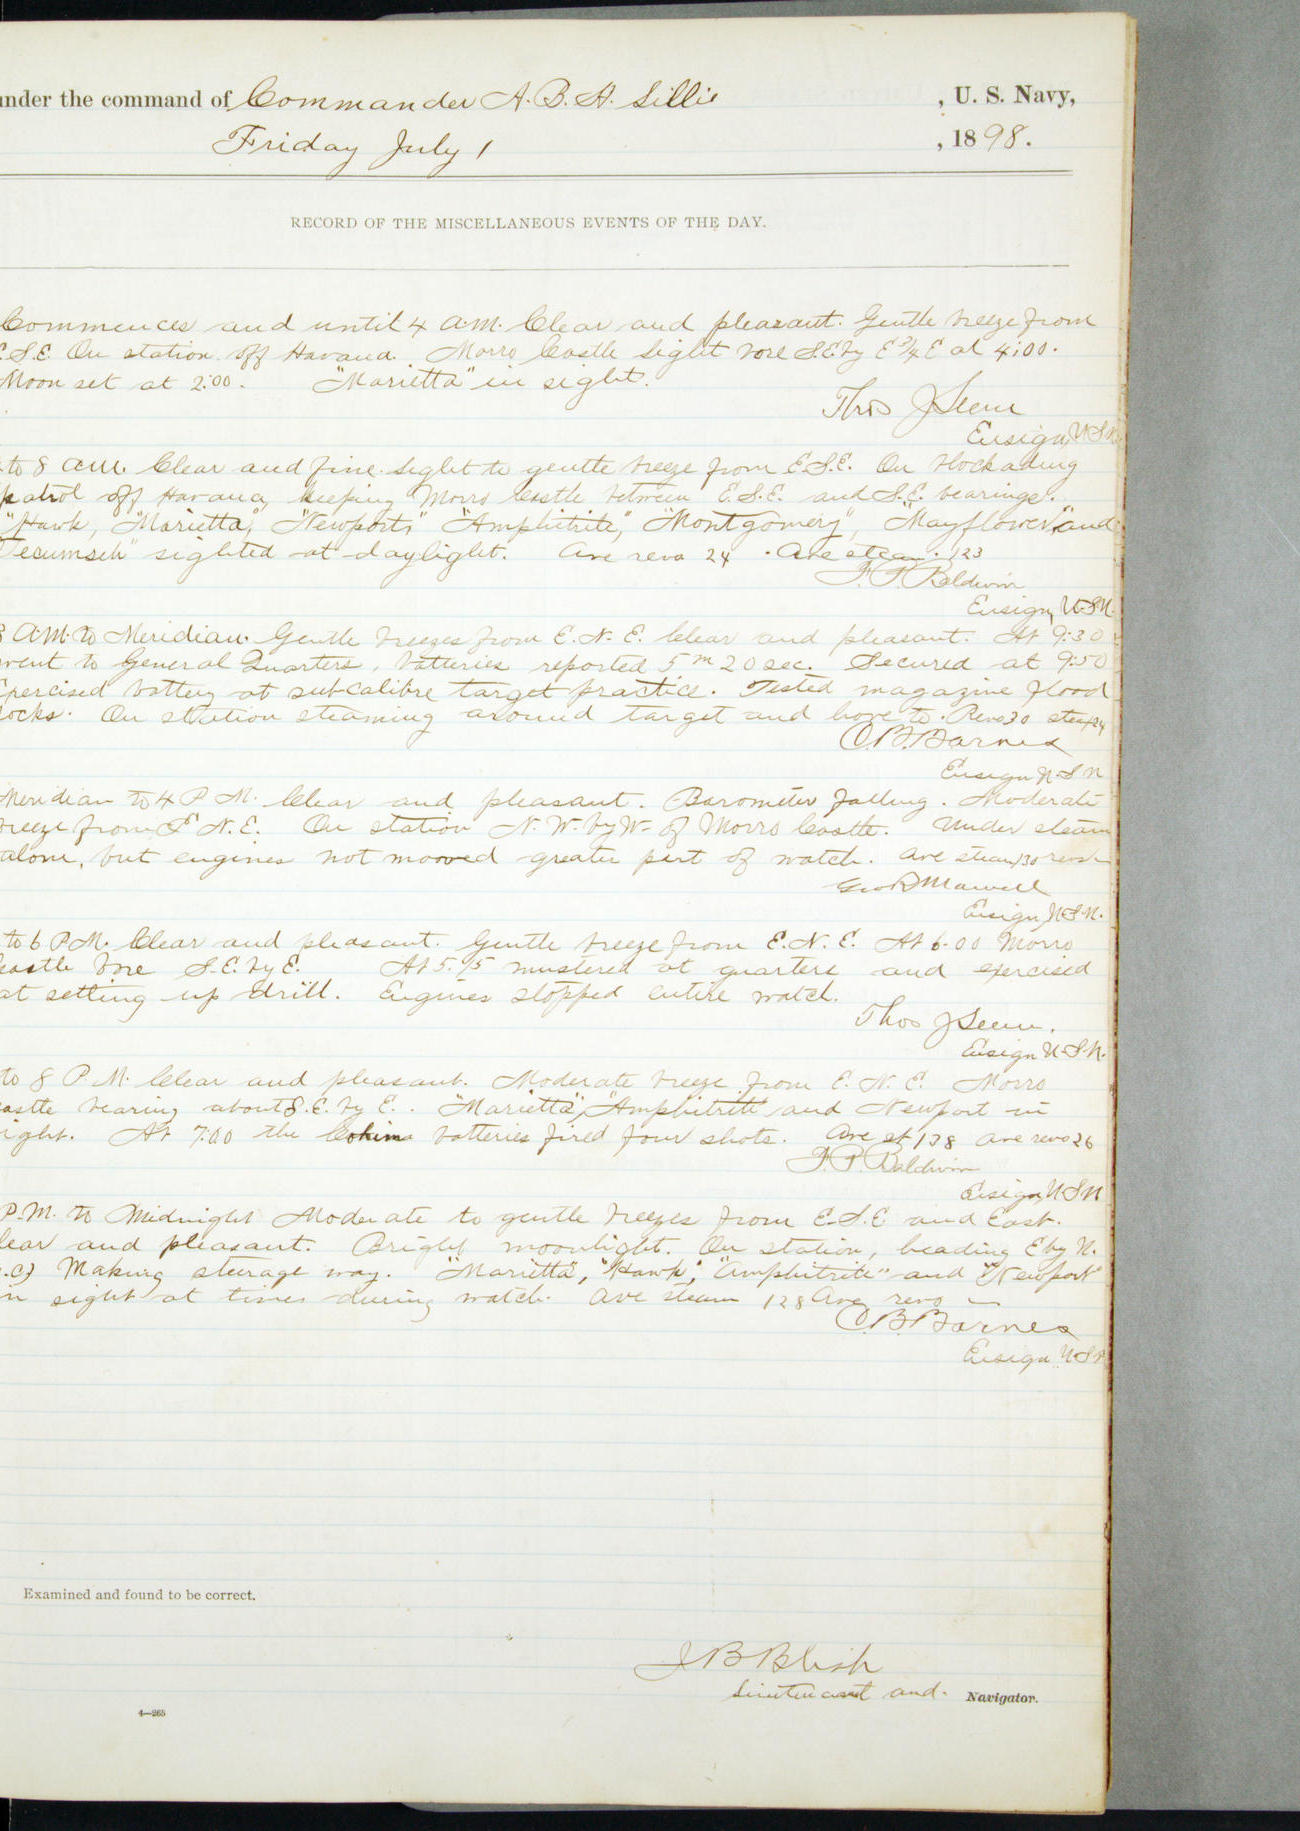 under the command of Commander A. B. H. Lillie , U. S. Navy,
Friday July 1 , 1898.
RECORD OF THE MISCELLANEOUS EVENTS OF THE DAY.
Commences and until 4 A.M. Clear and pleasant. Gentle breeze from
E.S.E. On station off Havana. Morro Castle Light bore S.E. by E ¾ E at 4:00.
Moon set at 2:00. "Marietta" in sight.
Thos J Senn
Ensign, U.S.N.
to 8 a.m. Clear and fine. Light to gentle breeze from E.S.E. On blockading
patrol off Havana, keeping Morro Castle between E.S.E. and S.E. bearings.
"Hawk, "Marietta", "Newport," "Amphitrite", "Montgomery", "Mayflower" and
Tecumseh" sighted at daylight. Ave revo 24. Ave steam. 123
F. P. Baldwin
Ensign, U.S.N.
8 A.M. to Meridian. Gentle breezes from E. N. E. Clear and pleasant. At 9:30
went to General Quarters, batteries reported 5 m 20 sec. Secured at 9:50
Exercised battery at sub-calibre target practice. Tested magazine flood
cocks. On station steaming around target and hove to. Revo 30 steam
C. B. Barnes
Ensign U.S.N
Meridian to 4 P. M. Clear and pleasant. Barometer falling. Moderate
breeze from E N. E. On station N. W. by W. of Morro Castle. Under steam
alone, but engines not mooved greater part of watch. Ave steam 130 revo
Geo R Marvell
Ensign, U.S.N.
to 6 P.M. Clear and pleasant. Gentle breeze from E. N. E. At 6.00 Morro
Castle bore S.E. by E. At 5.15 mustered at quarters and exercised
at setting up drill. Engines stopped entire watch.
Thos J Senn.
Ensign U.S.N.
to 8 P. M. Clear and pleasant. Moderate breeze from E. N. E. Morro
castle bearing about S.E. by E. . "Marietta", "Amphitrite and Newport in
ight. At 7:00 the Cohima batteries fired four shots. Ave st 128 ave revo 26
F. P. Baldwin
Ensign, U.S.N
P.M. to Midnight Moderate to gentle breezes from E.S.E and East.
lear and pleasant. Bright moonlight. On station, heading E by N.
.c) Making steerage way. "Marietta", "Hawk", "Amphitrite" and "Newport"
n sight at times during watch. Ave steam 128 Ave revo —
C. B. Barnes
Ensign U.S.N
Examined and found to be correct.
J B Blish
Lieutenant and Navigator.
4—265